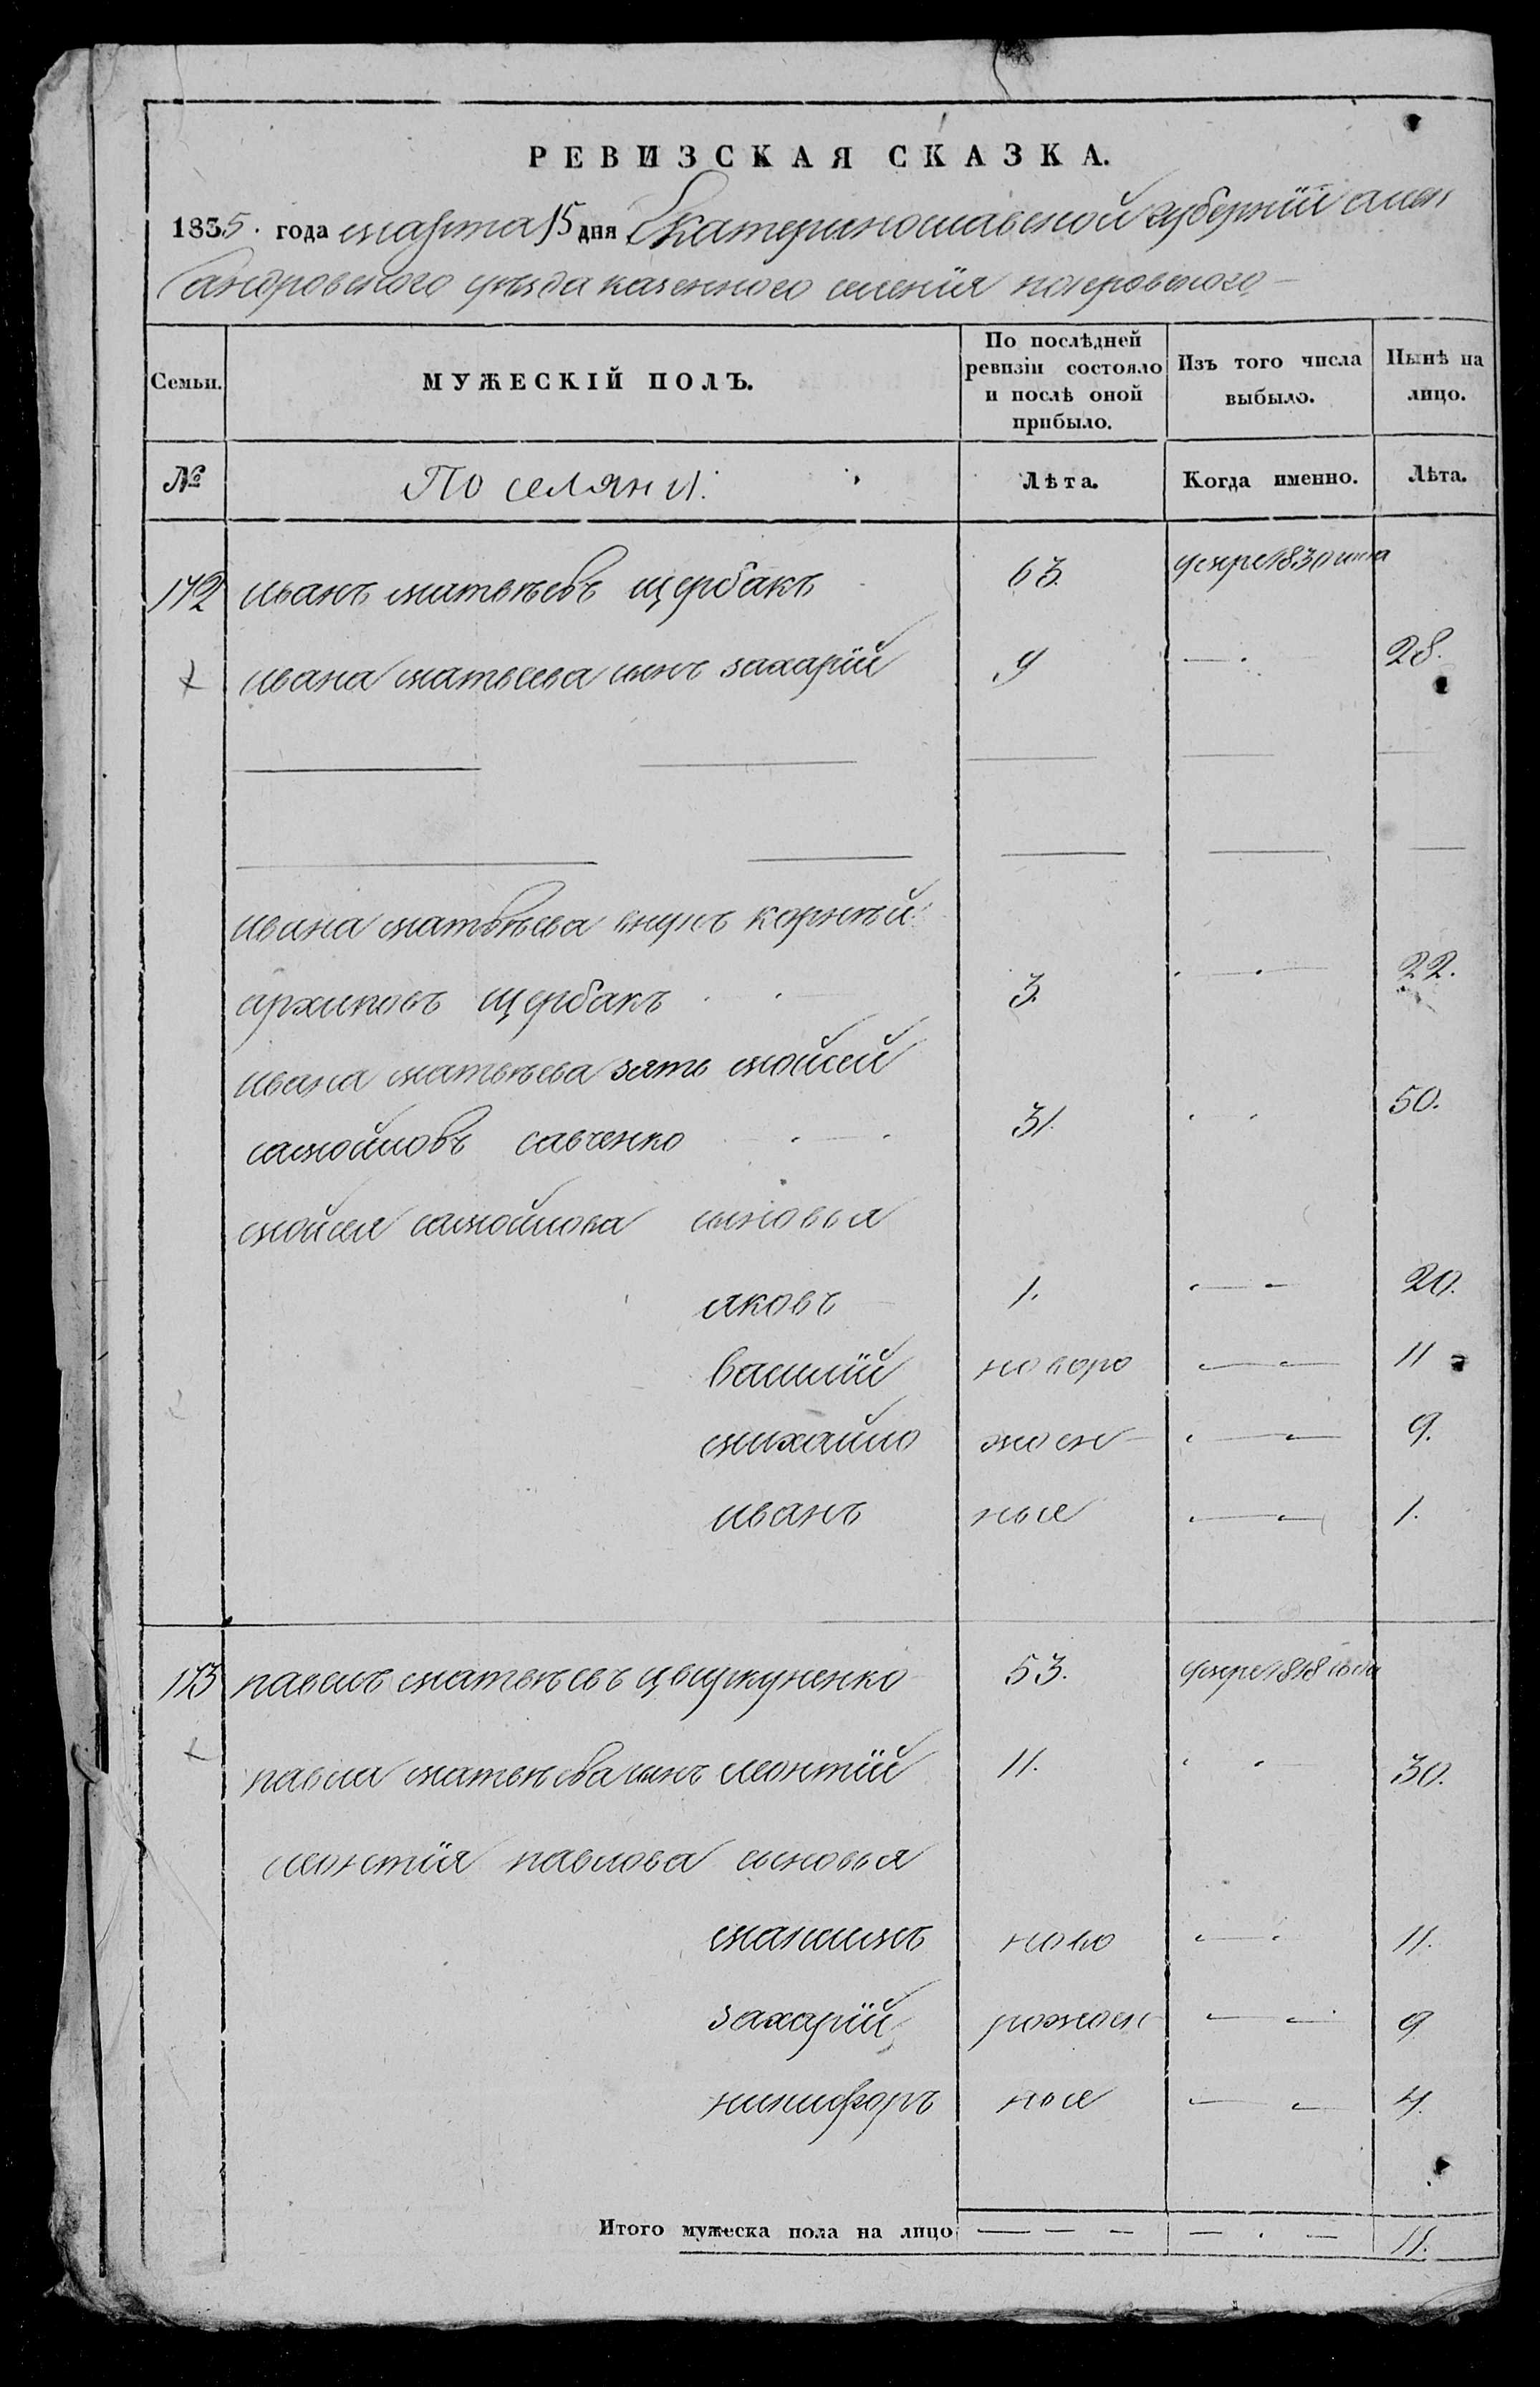 РЕВИЗСКАЯ СКАЗКА.
1835. года марта 15 дня Екатеринославской губернїи алек
сандровского уезда казенного селенїя покровского
Семьи. МУЖЕСКІЙ ПОЛЪ. По послѣдней ревизіи состояло и послѣ оной прибыло. Изъ того числа выбыло. Нынѣ на лицо.
№ Поселяни. Лѣта. Когда именно. Лѣта.
172 иванъ матвѣевъ щербакъ 63. умре 1830 года
ивана матвеева сынъ захарїй 9 28.
ивана матвѣева внукъ корнѣй
архиповъ щербакъ 3. 22.
ивана матвѣева зять мойсей
самойловъ савченко 31. 50.
мойсея самойлова сыновья
яковъ 1. 20.
василїй новоро 11
михайло жден 9.
иванъ ные 1.
173 павелъ матвѣевъ 53. умре 1818 года
павла матвѣева сынъ леонтїй 11. 30.
леонтїя павлова сыновья
максимъ ново 11.
захарїй рожден 9
никифоръ ные 4.
Итого мужеска пола на лицо 11.